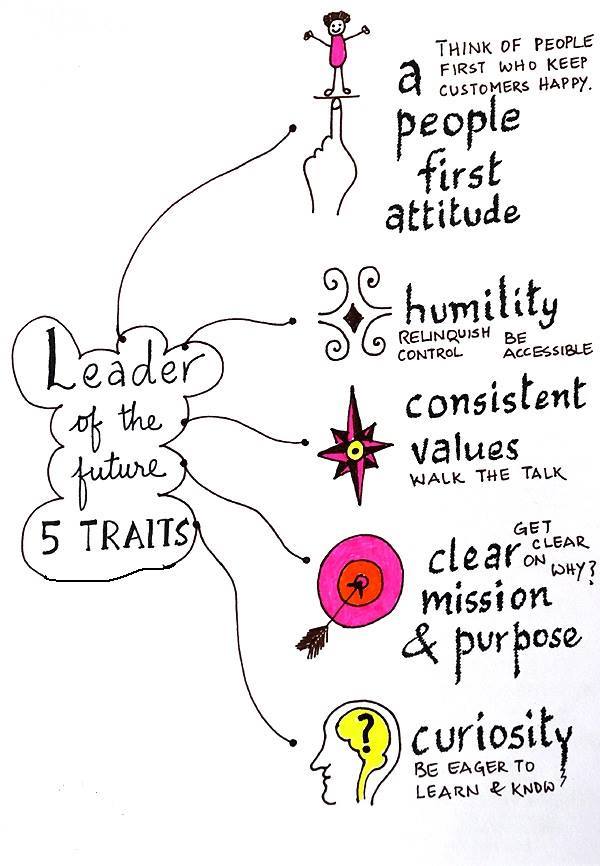 Leader
of the
future
5 TRAITS
a
people
first
attitude
THINK OF PEOPLE
FIRST WHO KEEP
CUSTOMERS HAPPY.
humility
RELINQUISH
CONTROL
BE
ACCESSIBLE
consistent
values
WALK THE TALK
clear
mission
& purpose
GET
CLEAR
ON WHY?
curiosity
BE EAGER TO
LEARN & KNOW
?